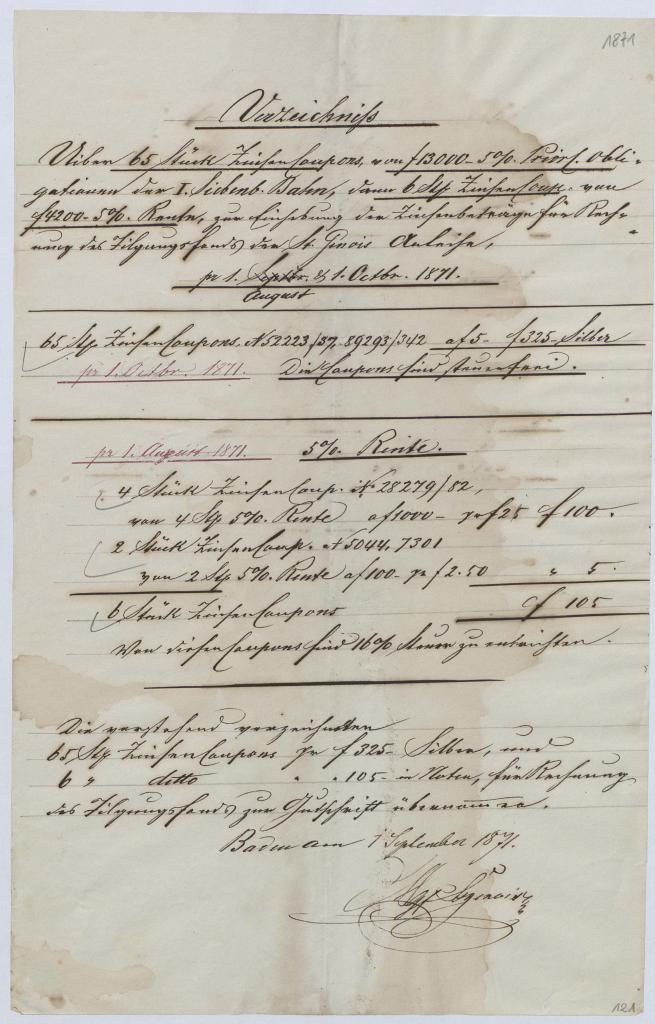 1871
Verzeichniß
Uiber 65 Stück Zinsen Coupons, von f 13000 - 5%. Priorit. Obli-
gationen der I. Siebenb. Bahn, dann 6 Stk Zinsen Coup. von
f 4200 - 5%. Rente, zur Einhebung der Zinsenbeträge für Rech-
nung des Tilgungsfonds der St. Genois Anleihe,
pr 1. Septbr. & 1. Octbr. 1871.
August
65 Stk Zinsen Coupons. N 52223/37, 89293/342 a f 5 - f 325 - Silber
pr 1. Octbr. 1871. Die Coupons sind steuerfrei.
pr 1. August 1871. 5% Rente.
4 Stück Zinsen Coup. N 28279/82,
von 4 Stk 5%. Rente a f 1000 - pr f 25 f 100.
2 Stück Zinsen Coup. N 5044, 7301
von 2 Stk 5%. Rente a f 100 - pr f 2.50 " 5.
6 Stück Zinsen Coupons f 105
Von diesen Coupons sind 16% Steuer zu entrichten.
Die vorstehend verzeichneten
65 Stk Zinsen Coupons pr f 325 - Silber, und
6 " ditto " " 105 - in Noten, für Rechnung
des Tilgungsfonds zur Gutschrift übernommen.
Baden am 1 September 1871.
121